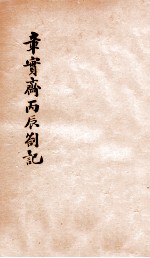 章實齋丙辰劄記